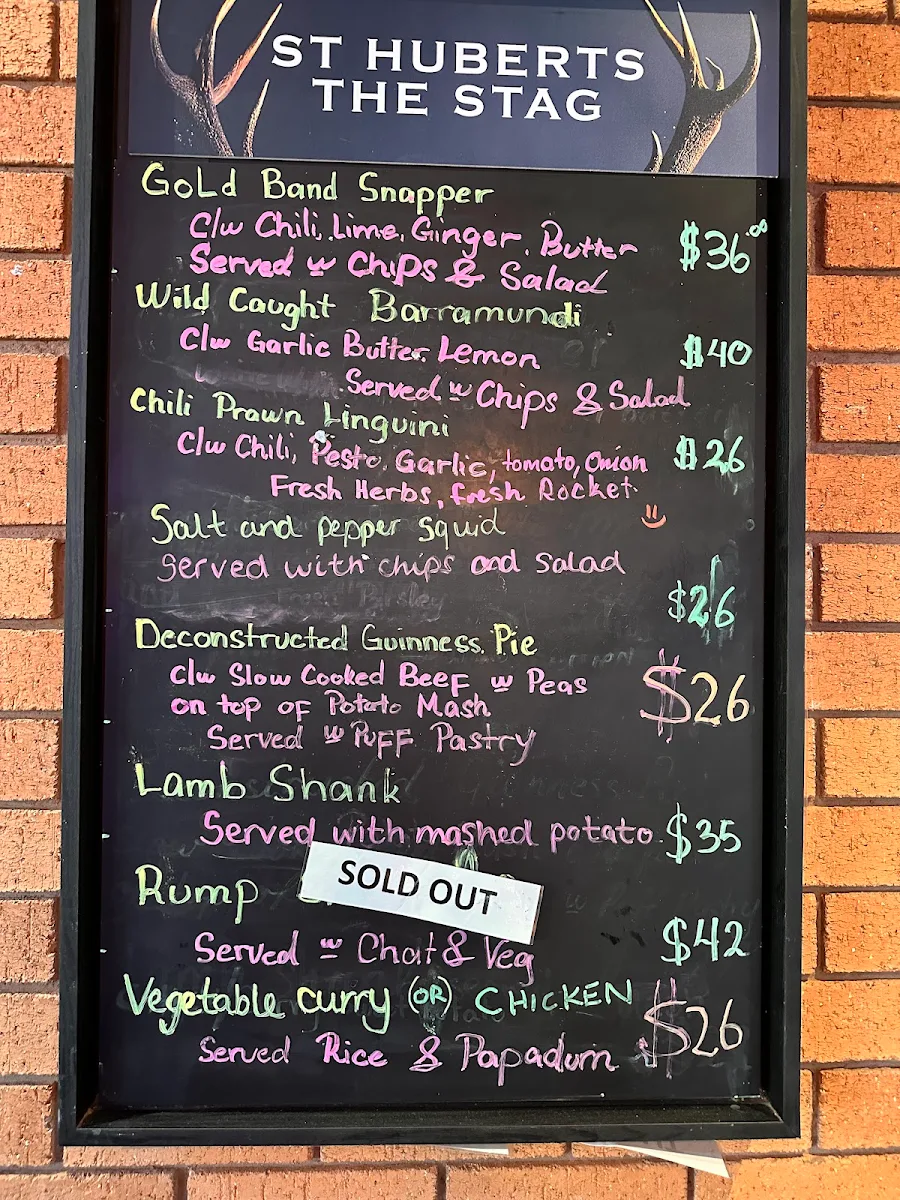 ST HUBERTS
THE STAG
GoLd Band Snapper
C/w Chili, Lime, Ginger, Butter
Served w Chips & Salad
$36.00
Wild Caught Barramundi
C/w Garlic Butter, Lemon
$40
Served w Chips & Salad
Chili Prawn Linguini
C/w Chili, Pesto, Garlic, tomato, Onion
$26
Fresh Herbs, fresh Rocket
Salt and pepper squid
Served with chips and salad
$26
Deconstructed Guinness Pie
C/w Slow Cooked Beef w Peas
on top of Potato Mash
$26
Served w Puff Pastry
Lamb Shank
Served with mashed potato
$35
Rump
SOLD OUT
Served w Chat & Veg
$42
Vegetable curry (OR) CHICKEN
$26
Served Rice & Papadum